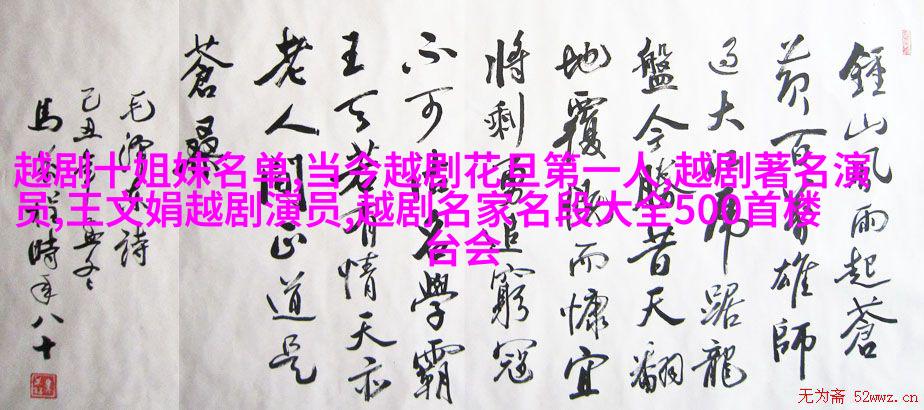 越剧十姐妹名单,当今越剧花旦第一人,越剧著名演
员,王文娟越剧演员,越剧名家名段大全500首楼
台会
鍾山風雨起蒼
黄百雄師
过大江虎踞龍
盤今勝昔天翻
地覆慨而慷宜
將剩勇追窮寇
不可沽名學霸
王天若有情天亦
老人間正道是
蒼桑
毛澤东詩
己丑年冬
馬時年八十
无为斋 52wwz.cn